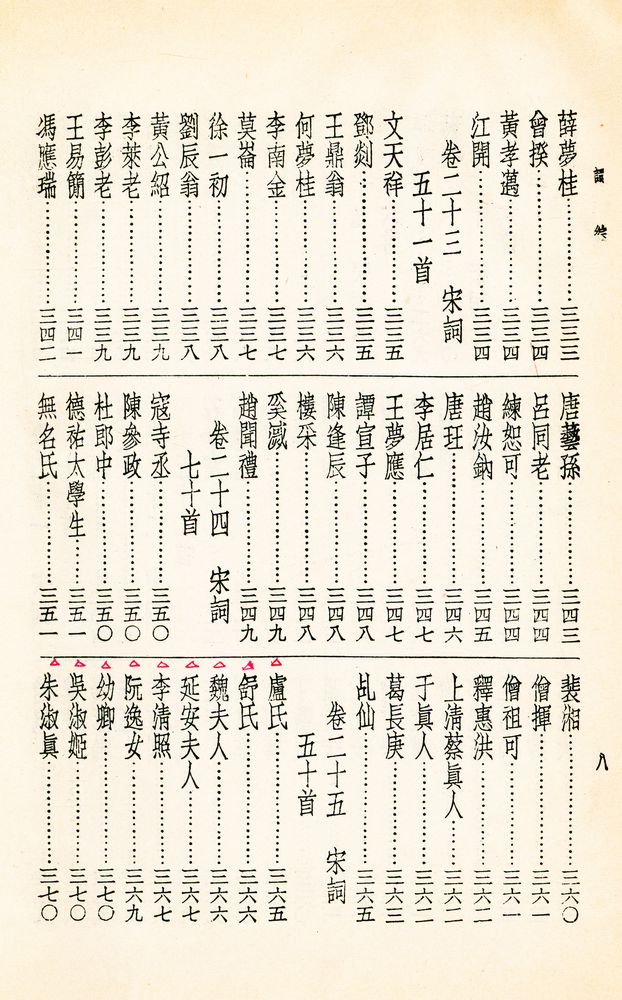 詞綜
八
薛夢桂……………三三三
曾揆……………三三四
黃孝邁……………三三四
江開……………三三四
卷二十三 宋詞
五十一首
文天祥……………三三五
鄧剡……………三三五
王鼎翁……………三三六
何夢桂……………三三六
李南金……………三三七
莫崙……………三三七
徐一初……………三三八
劉辰翁……………三三八
黃公紹……………三三九
李萊老……………三三九
李彭老……………三三九
王易簡……………三四一
馮應瑞……………三四二
唐藝孫……………三四三
呂同老……………三四四
練恕可……………三四四
趙汝鈉……………三四五
唐玨……………三四六
李居仁……………三四七
王夢應……………三四七
譚宣子……………三四八
陳逢辰……………三四八
樓采……………三四八
奚㵄……………三四九
趙聞禮……………三四九
卷二十四 宋詞
七十首
寇寺丞……………三五〇
陳參政……………三五〇
杜郎中……………三五〇
德祐太學生……三五一
無名氏……………三五一
裴湘……………三六〇
僧揮……………三六一
僧祖可……………三六一
釋惠洪……………三六二
上清蔡眞人……三六二
于眞人……………三六二
葛長庚……………三六三
乩仙……………三六五
卷二十五 宋詞
五十首
盧氏……………三六五
舒氏……………三六六
魏夫人……………三六六
延安夫人………三六七
李清照……………三六七
阮逸女……………三六九
幼卿……………三七〇
吳淑姬……………三七〇
朱淑眞……………三七〇